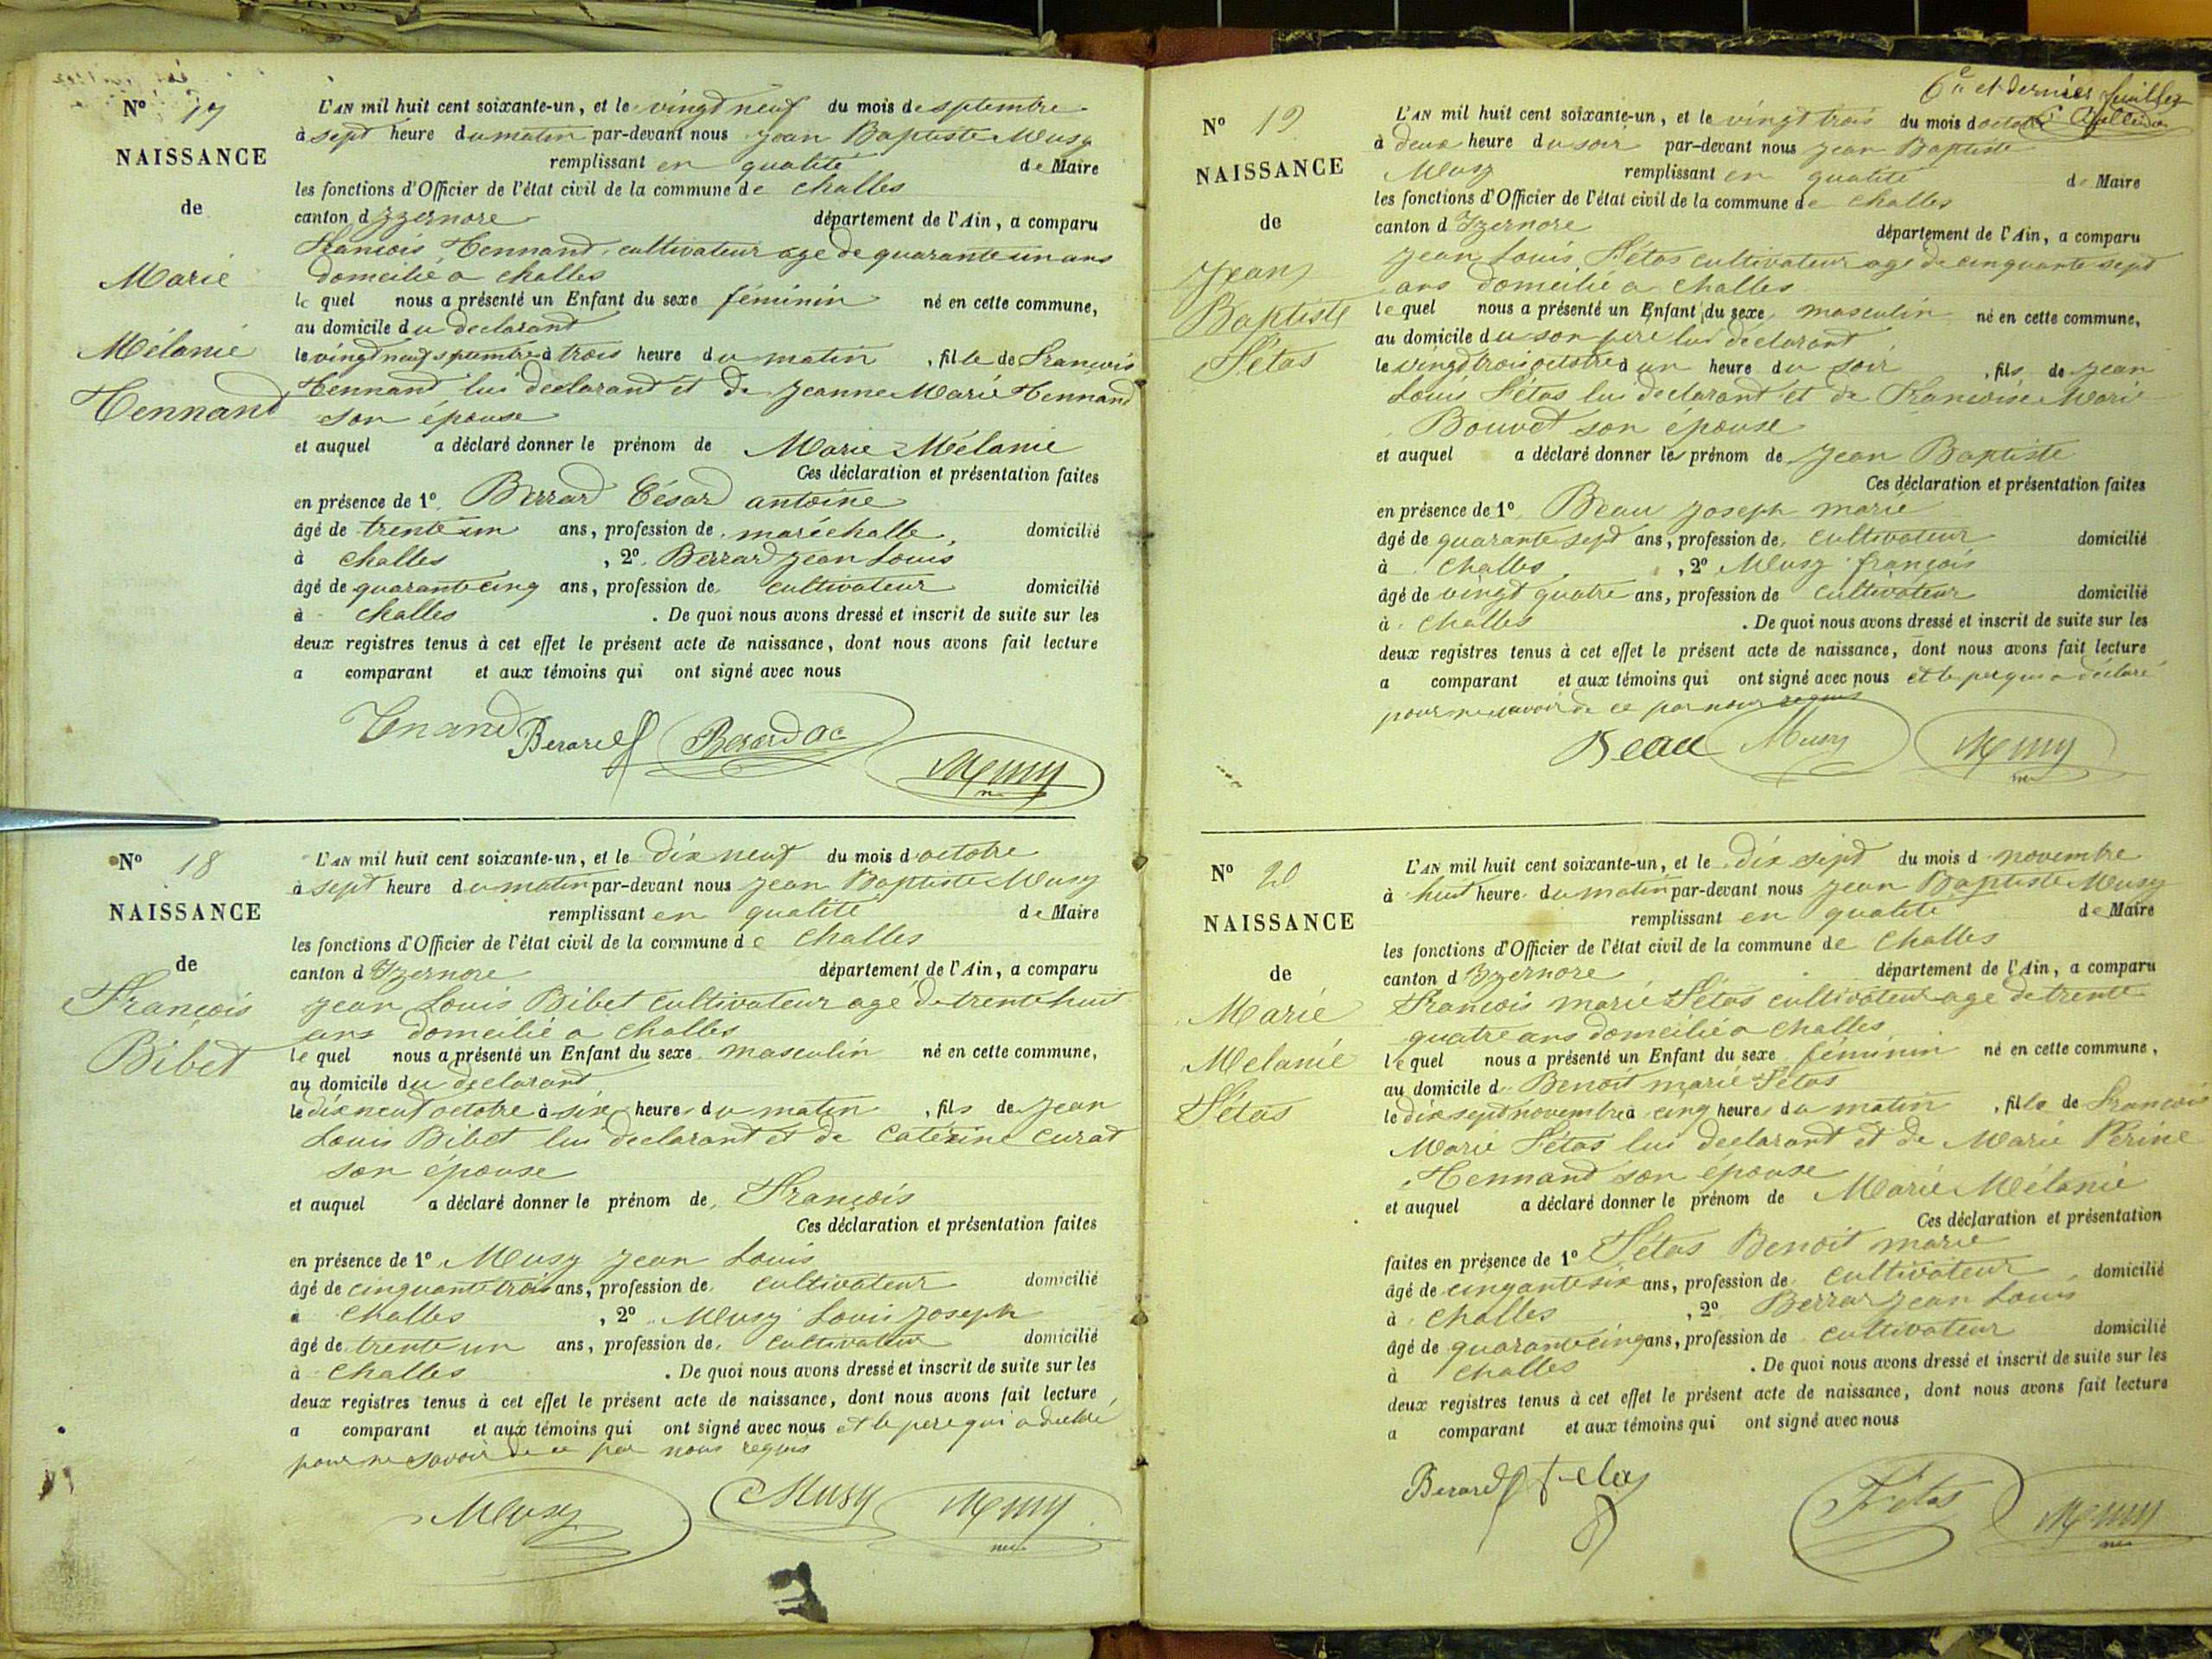 N° 17
NAISSANCE
de
Marie
Mélanie
Tennand
L'AN mil huit cent soixante-un, et le vingt neuf du mois de septembre
à sept heure du matin par-devant nous Jean Baptiste Musy
remplissant en qualité de Maire
les fonctions d'Officier de l'état civil de la commune de Challes
canton d Izernore département de l'Ain, a comparu
François Tennand cultivateur age de quarante un ans
domcilié a challes
le quel nous a présenté un Enfant du sexe féminin né en cette commune,
au domicile du declarant
le vingt neuf septembre à trois heure du matin, fille de François
Tennand lui declarant et de Jeanne Marie Tennand
son épouse
et auquel a déclaré donner le prénom de Marie Mélanie
Ces déclaration et présentation faites
en présence de 1° Berrard César antoine
âgé de trente un ans, profession de maréchalle, domicilié
à challes, 2° Berrard Jean Louis
âgé de quarante cinq ans, profession de cultivateur domicilié
à challes. De quoi nous avons dressé et inscrit de suite sur les
deux registres tenus à cet effet le présent acte de naissance, dont nous avons fait lecture
a comparant et aux témoins qui ont signé avec nous
Tnand Berard Berard ac Musy
N° 18
NAISSANCE
de
François
Bibet
L'AN mil huit cent soixante-un, et le dix neuf du mois d octobre
à sept heure du matin par-devant nous Jean Baptiste Musy
remplissant en qualité de Maire
les fonctions d'Officier de l'état civil de la commune de Challes
canton d Izernore département de l'Ain, a comparu
Jean Louis Bibet cultivateur agé de trente huit
ans domcilié a challes
le quel nous a présenté un Enfant du sexe masculin né en cette commune,
au domicile du declarant
le dix neuf octobre à six heure du matin, fils de Jean
Louis Bibet lui declarant et de Caterine Curat
son épouse
et auquel a déclaré donner le prénom de François
Ces déclaration et présentation faites
en présence de 1° Musy Jean Louis
âgé de cinquante trois ans, profession de cultivateur domicilié
à Challes, 2° Musy Louis Joseph
âgé de trente un ans, profession de cultivateur domicilié
à Challes. De quoi nous avons dressé et inscrit de suite sur les
deux registres tenus à cet effet le présent acte de naissance, dont nous avons fait lecture
a comparant et aux témoins qui ont signé avec nous et le pere qui a declaré
pour ne savoir de ce par nous requis
Musy Musy Musy
6e et dernier feuillet
N° 19
NAISSANCE
de
Jean
Baptiste
Sétas
L'AN mil huit cent soixante-un, et le vingt trois du mois d octobre
à deux heure du soir par-devant nous Jean Baptiste
Musy remplissant en qualité de Maire
les fonctions d'Officier de l'état civil de la commune de Challes
canton d Izernore département de l'Ain, a comparu
Jean Louis Sétas cultivateur agé de cinquante sept
ans domcilié a Challes
le quel nous a présenté un Enfant du sexe masculin né en cette commune,
au domicile du son pere lui déclarant
le vingt trois octobre à un heure du soir, fils de Jean
Louis Sétas lui declarant et de Francoise Marie
Bouvet son épouse
et auquel a déclaré donner les prénom de Jean Baptiste
Ces déclaration et présentation faites
en présence de 1° Beau Joseph marie
âgé de quarante sept ans, profession de cultivateur domicilié
à Challes, 2° Musy françois
âgé de vingt quatre ans, profession de cultivateur domicilié
à Challes. De quoi nous avons dressé et inscrit de suite sur les
deux registres tenus à cet effet le présent acte de naissance, dont nous avons fait lecture
a comparant et aux témoins qui ont signé avec nous et le pere qui a déclaré
pour ne savoir de ce par nous requis
Beau Musy Musy
N° 20
NAISSANCE
de
Marie
Melanie
Sétas
L'AN mil huit cent soixante-un, et le dix sept du mois d novembre
à huit heure du matin par-devant nous Jean Baptiste Musy
remplissant en qualité de Maire
les fonctions d'Officier de l'état civil de la commune de Challes
canton d Izernore département de l'Ain, a comparu
François marie Sétas cultivateur age de trente
quatre ans domcilié a Challes
le quel nous a présenté un Enfant du sexe féminin né en cette commune,
au domicile d Benoit marie Sétas
le dix sept novembre à cinq heure du matin, fille de François
Marie Sétas lui declarant et de Marie Périne
Tennand son épouse
et auquel a déclaré donner le prénom de Marie Mélanie
Ces déclaration et présentation
faites en présence de 1° Sétas Benoit marie
âgé de cinqante six ans, profession de cultivateur, domicilié
à Challes, 2° Berrar Jean Louis
âgé de quarante cinq ans, profession de cultivateur domicilié
à Challes. De quoi nous avons dressé et inscrit de suite sur les
deux registres tenus à cet effet le présent acte de naissance, dont nous avons fait lecture
a comparant et aux témoins qui ont signé avec nous
Berard Musy